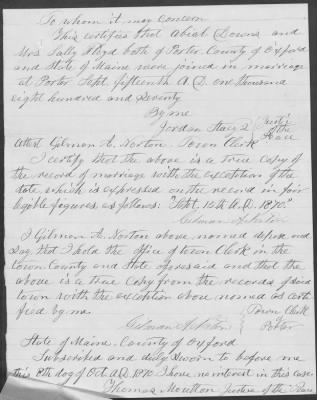 To whom it may concern
This certifies that Abial Downs and
Mrs Sally Floyd both of Porter County of Oxford
and State of Maine were joined in marriage
at Porter Sept. fifteenth A.D. one thousand
eight hundred and seventy
By me
Jordan Stacy Justice of the Peace
Attest Gilman A. Norton, Town Clerk
I certify that the above is a true copy of
the record of marriage with the exception of the
date which is expressed on the record in fair
legible figures as follows: "Sept. 15th A.D. 1870."
Gilman A. Norton
I Gilman A. Norton above named depose and
say that I hold the office of town Clerk in the
town County and State aforesaid and that the
above is a true Copy from the records of said
town with the exception above named as certi
fied by me.
Gilman A. Norton Town Clerk Porter
State of Maine. County of Oxford
Subscribed and duly Sworn to before me
this 8th day of Oct A.D. 1890 I have no interest in this case.
Thomas Moulton Justice of the Peace